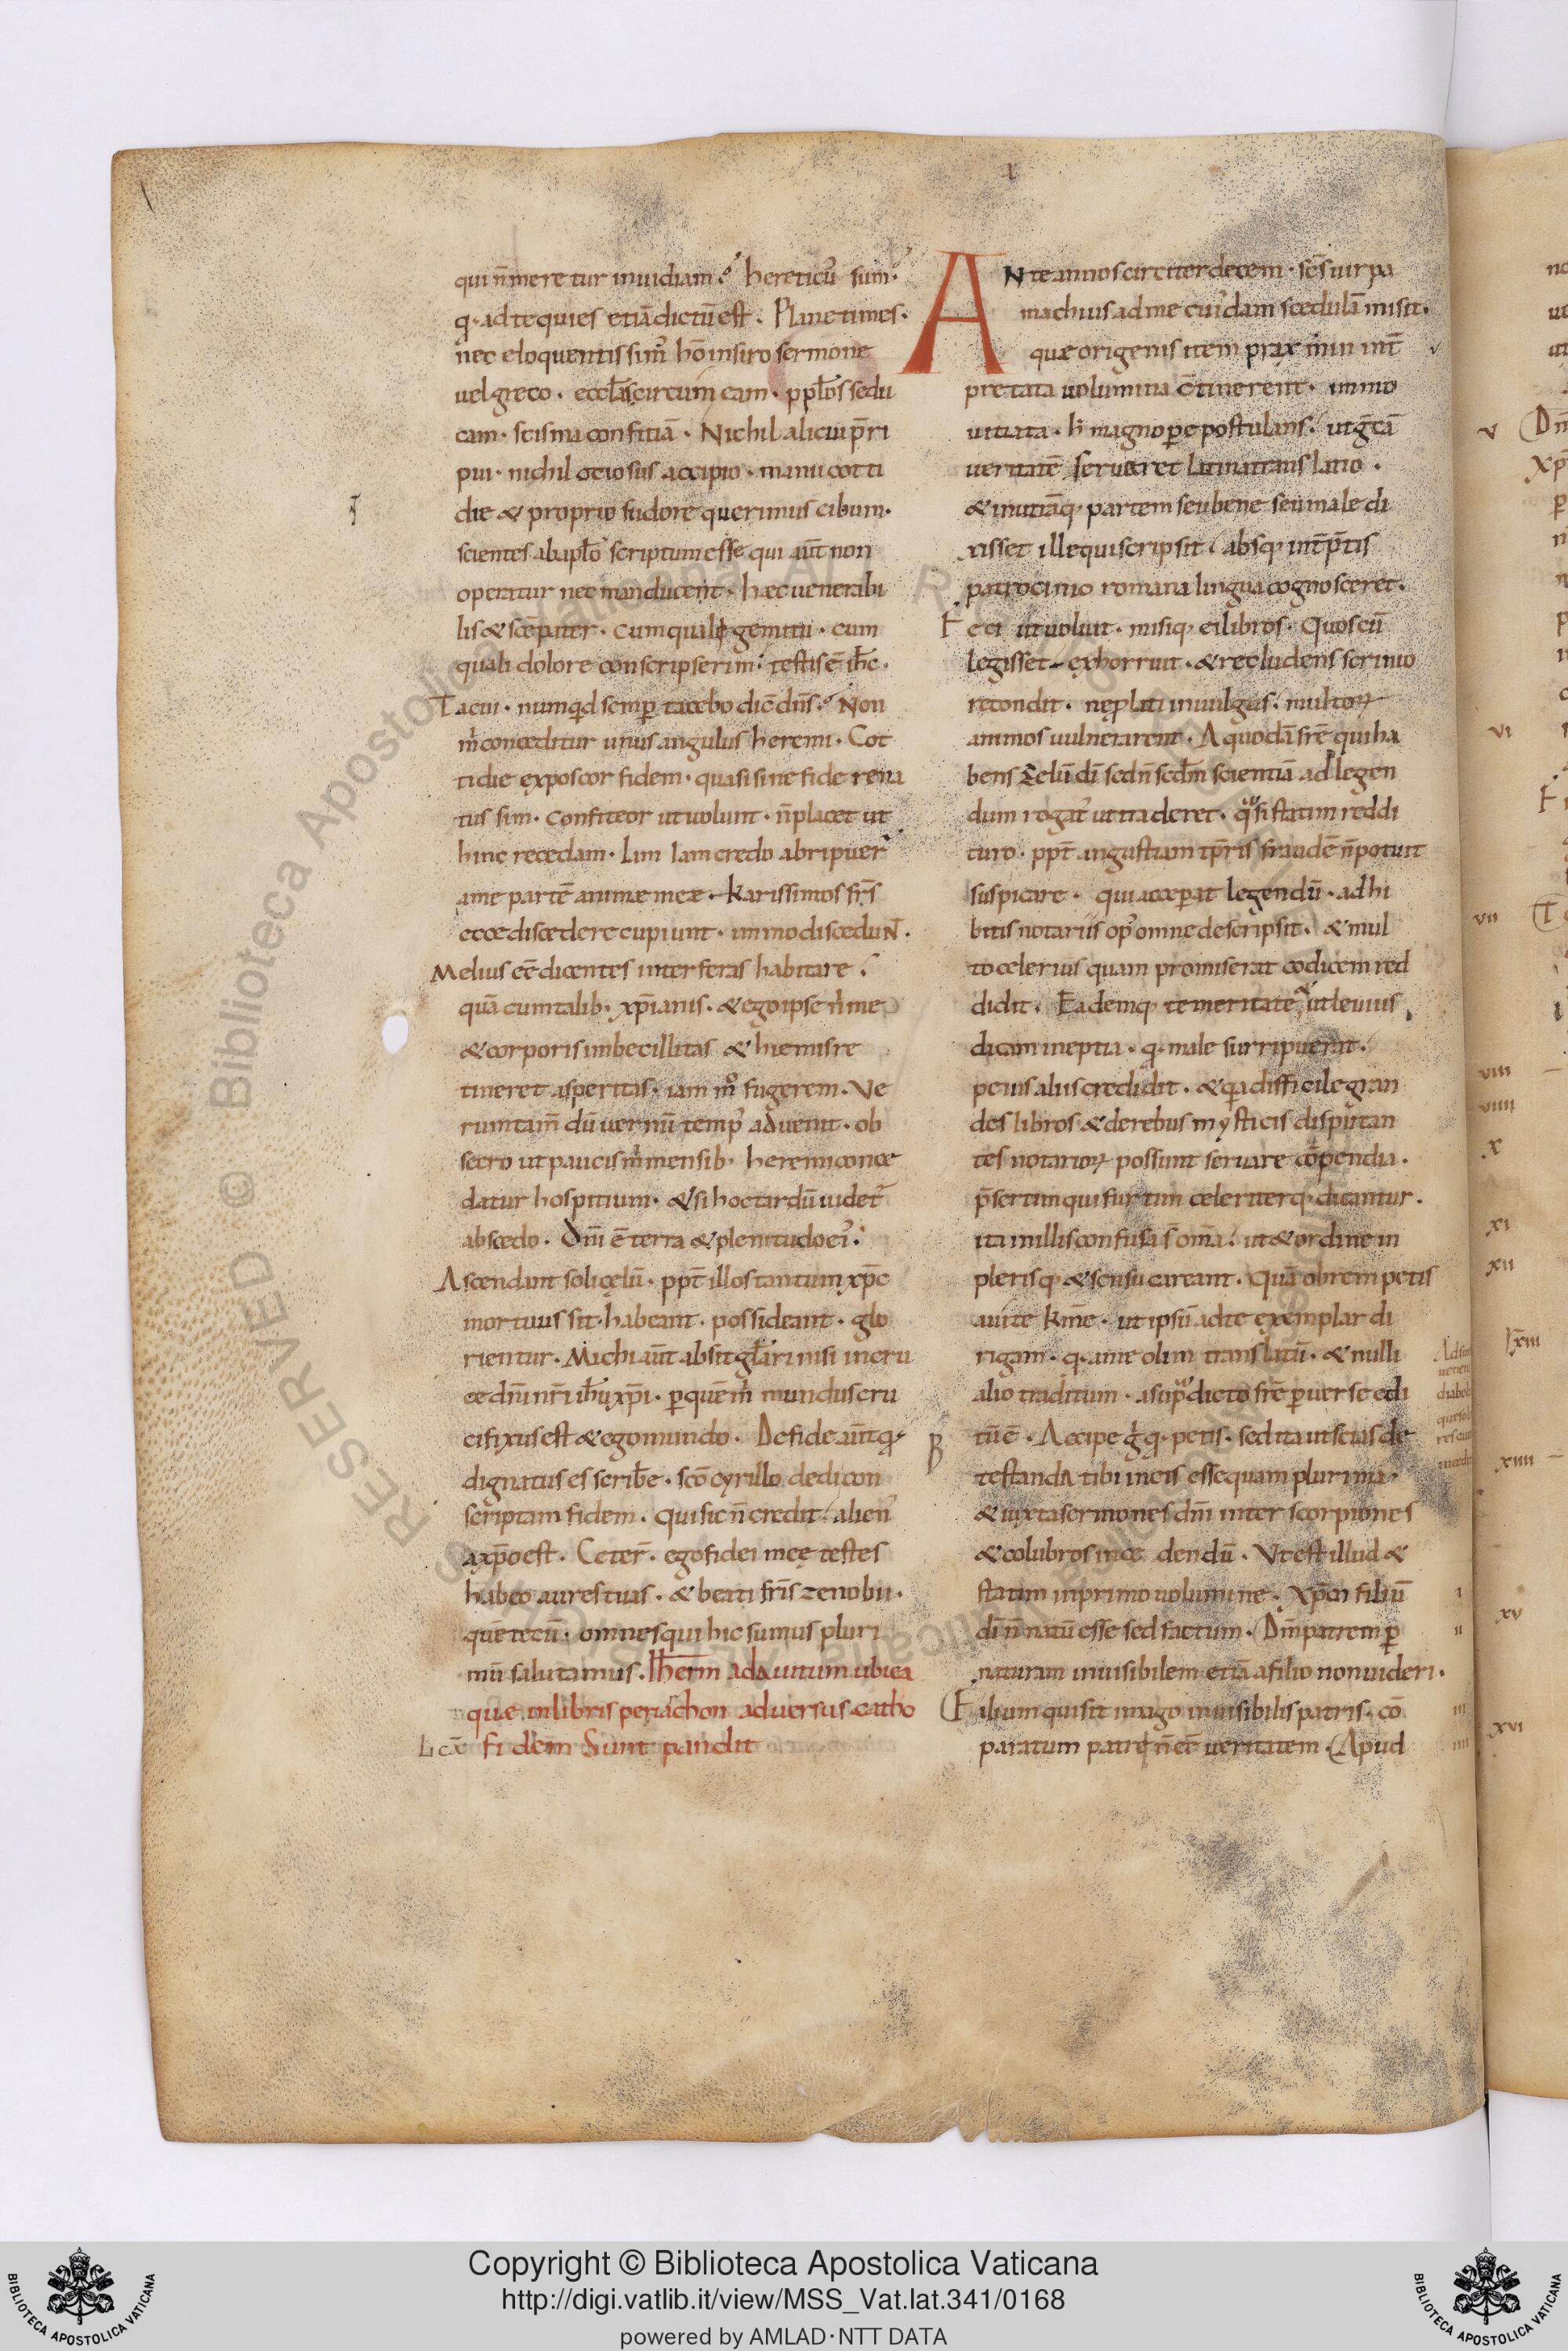 qui n̄ meretur inuidiam.' hereticus sum.'
q· ad te quies etiā dictū est. Plane times.
nec eloquentissim' hō insiro sermone
uel greco. eccl̄as circumeam. ppl̄os sedu
cam. scisma conficiā. Nichil alicui p̄ri
pui. nichil ociosus accipio. manu cotti
die & proprio sudore querimus cibum.
scientes ab apl̄o scriptum esse qui aūt non
operatur nec manducent. hæc uenerabi
lis & sc̄e pater. cum quali gemitu. cum
quali dolore conscripserim. testis ē ih̄c.
Tacui. numqd semp tacebo dic̄ dn̄s. Non
m conceditur unus angulus heremi. Cot
tidie exposcor fidem. quasi sine fide rena
tus sim. confiteor ut uolunt. n̄ placet ut
hinc recedam. Iim Iam credo abripuer
ame partē animæ meæ. karissimos fr̄s
ecce discedere cupiunt. immo discedunt.
Melius eē dicentes inter feras habitare.
quā cum talib. xp̄ianis. & ego ipse n̄ me
& corporis imbecillitas & hiemis re
tineret asperitas. iam mo fugerem. Ve
rumtam̄ dū uernū temp' aduenit. ob
secro ut paucis m mensib. heremi conce
datur hospitium. & si hoc tardū uidet
abscedo. Dn̄i ē terra & plenitudo ei'.
Ascendant soli cęlū. ppt̄ illos tantum xp̄c
mortuus sit. habeant. possideant. glo
rientur. Michi aūt absit gl̄ari nisi in cru
ce dn̄i nr̄i ih̄u xp̄i. p quem m mundus cru
cifixus est & ego mundo. De fide aūt q·
dignatus es scribe. sc̄o cyrillo dedi con
scriptam fidem. qui sic n̄ credit alien'
a xp̄o est. Ceter. ego fidei meę testes
habeo aures tuas. & beati fr̄is zenobii.
quē tecū. omnes qui hic sumus pluri
mū salutamus. Iher̄m ad auitum ubi ea
que in libris periachon aduersus catho
licā fidem sunt pandit
Ante annos circiter decem. sc̄s uir pa
machius ad me cui'dam scedulā misit.
quæ origenis item prax min int̄
pretata uolumina c̄tinerent. immo
uitiata. h magnope postulans. ut gcā
ueritatē seruaret latina translatio.
& in utiāq· partem seu bene seu male di
xisset ille qui scripsit. absq· intp̄tis
patrocinio romana lingua cognosceret.
Feci ut uoluit. misiq· ei libros. Quos cū
legisset. exhorruit. & recludens scrinio
recondit. ne plati in uulgus. multoꝝ
animos uulnerarent. A quodā fr̄e qui ha
bens zelū dī sed n̄ scdm̄ scientiā ad legen
dum rogat' ut traderet. quasi statim reddi
turo. ppt̄ angustiam tp̄ris fraudē n̄ potuit
suspicare. qui acceperat legendū. adhi
bitis notariis op' omne descripsit. & mul
to celerius quam promiserat codicem red
didit. Eademq· temeritate ut leuius
dicam ineptia. q· male surripuerat.
peius aliis credidit. & qa difficile gran
des libros & de rebus mysticis disputan
tes notarioꝝ possunt seruare cōpendia.
p̄sertim qui furtim celeriterq· dicantur.
ita in illis confusa s̄ om̄a. ut & ordine in
plerisq· & sensu careant. Quā obrem petis
auite km̄e. ut ipsū ad te exemplar di
rigam. q· a me olim translatū. & nulli
alio traditum. a supdicto fr̄e puerse edi
tū ē. Accipe g q· petis. sed ita ut scias de
testanda tibi in eis esse quam plurima.
& iuxta sermones dn̄i inter scorpiones
& colubros incedendū. Vt est illud &
statim in primo uolumine. Xp̄m filiū
dī n̄ natū esse sed factum. Dm̄ patrem p
naturam inuisibilem etiā a filio non uideri.
Filium qui sit imago inuisibilis patris. cō
paratum patri n̄ eē ueritatem. Apud
i
ii
iii
iiii
v
vi
vii
viii
viiii
x
xi
xii
xiii
xiiii
xv
xvi
Copyright © Biblioteca Apostolica Vaticana
http://digi.vatlib.it/view/MSS_Vat.lat.341/0168
powered by AMLAD·NTT DATA
BIBLIOTECA APOSTOLICA VATICANA
BIBLIOTECA APOSTOLICA VATICANA